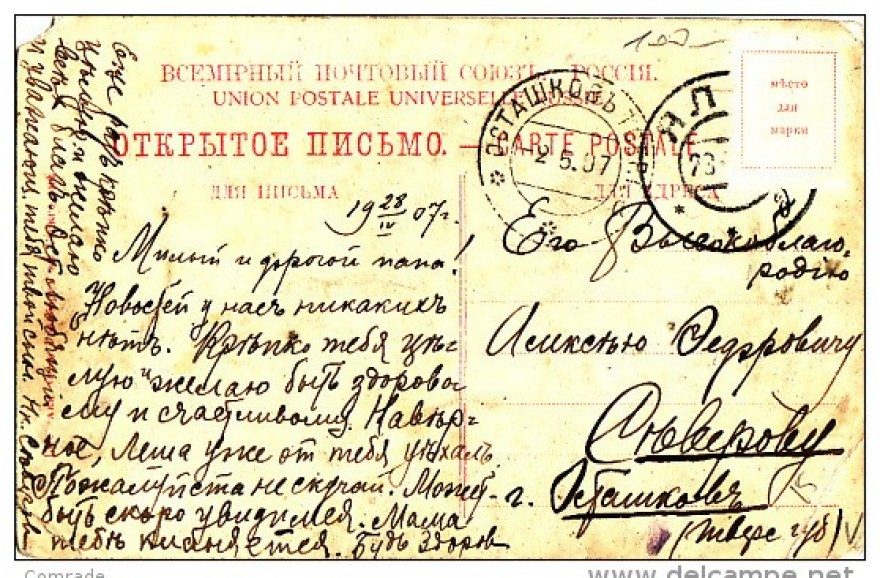 ВСЕМІРНЫЙ ПОЧТОВЫЙ СОЮЗЪ. РОССІЯ.
UNION POSTALE UNIVERSELLE.
ОТКРЫТОЕ ПИСЬМО. — CARTE POSTALE
ДЛЯ ПИСЬМА
ДЛЯ АДРЕСА
мѣсто
для
марки
ОСТАШКОВЪ
2.5.07
19 28/IV 07 г.
Милый и дорогой папа!
Новостей у насъ никакихъ
нѣтъ. Крѣпко тебя цѣ-
лую и желаю быть здорово-
му и счастливому. Навѣр-
ное, Леша уже от тебя уѣхалъ.
Пожалуйста не скучай. Может
быть скоро увидимся. Мама
тебѣ кланяется. Будь здоров
Еще разъ крѣпко
цѣлую и желаю
всѣхъ благъ. любящій
и уважающ. тебя твой сын. Ник.
Его Высокоблаго-
родію
Алексѣю Федоровичу
Сѣверову
г. Осташковъ
(Тверс губ)
Comrade
www.delcampe.net